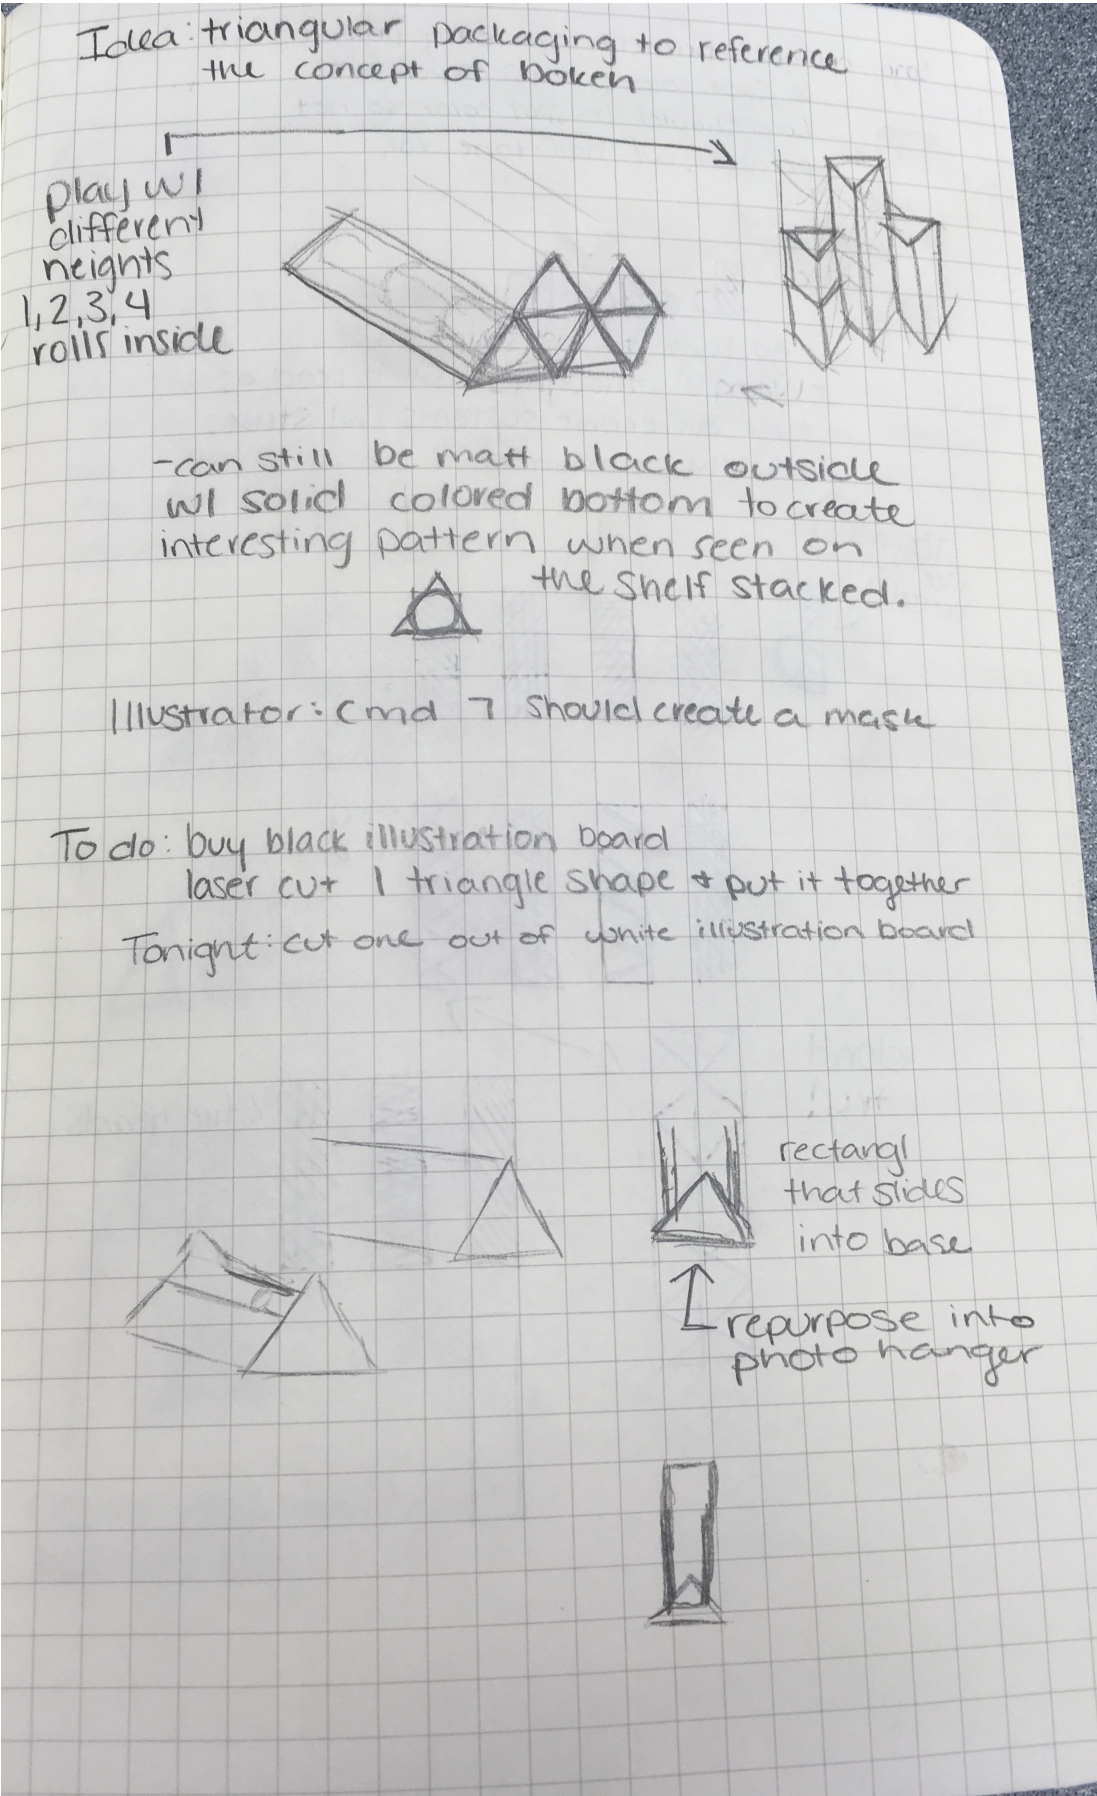 Idea: triangular packaging to reference
the concept of boken
play w/
different
heights
1, 2, 3, 4
rolls inside
-can still be matt black outside
w/ solid colored bottom to create
interesting pattern when seen on
the shelf stacked.
Illustrator: cmd 7 should create a mask
To do: buy black illustration board
laser cut 1 triangle shape + put it together
Tonight: cut one out of white illustration board
rectangl
that slides
into base
repurpose into
photo hanger